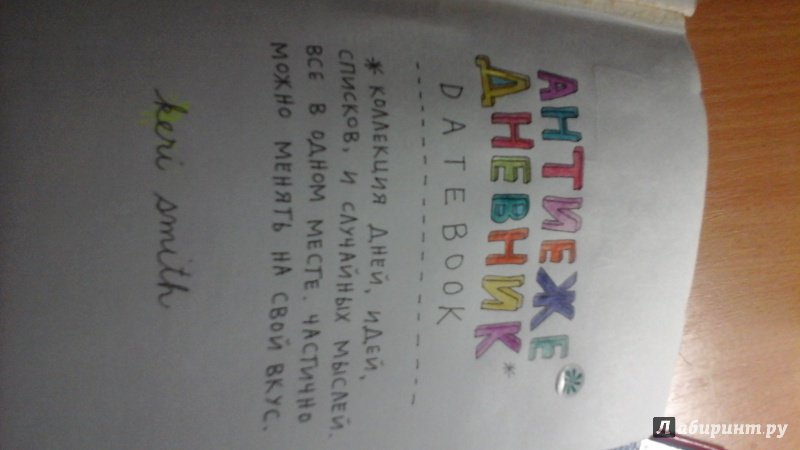 АНТИЕЖЕ*
ДНЕВНИК*
DATEBOOK
* КОЛЛЕКЦИЯ ДНЕЙ, ИДЕЙ,
СПИСКОВ, И СЛУЧАЙНЫХ МЫСЛЕЙ.
ВСЕ В ОДНОМ МЕСТЕ. ЧАСТИЧНО
МОЖНО МЕНЯТЬ НА СВОЙ ВКУС.
keri smith
Лабиринт.ру